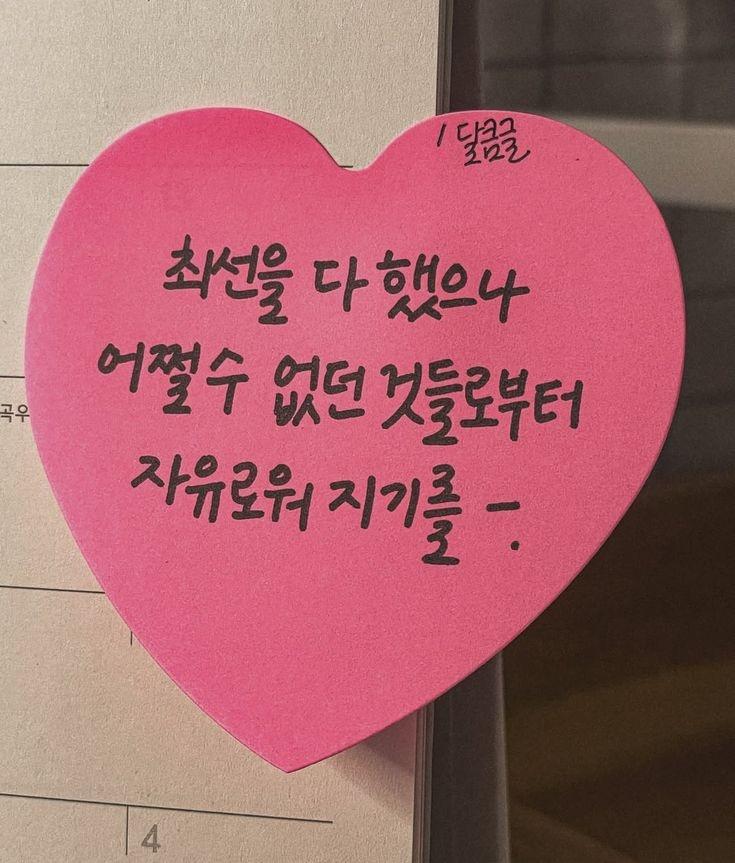 / 달콤글
최선을 다 했으나
어쩔수 없던 것들로부터
자유로워 지기를 -.
곡우
4